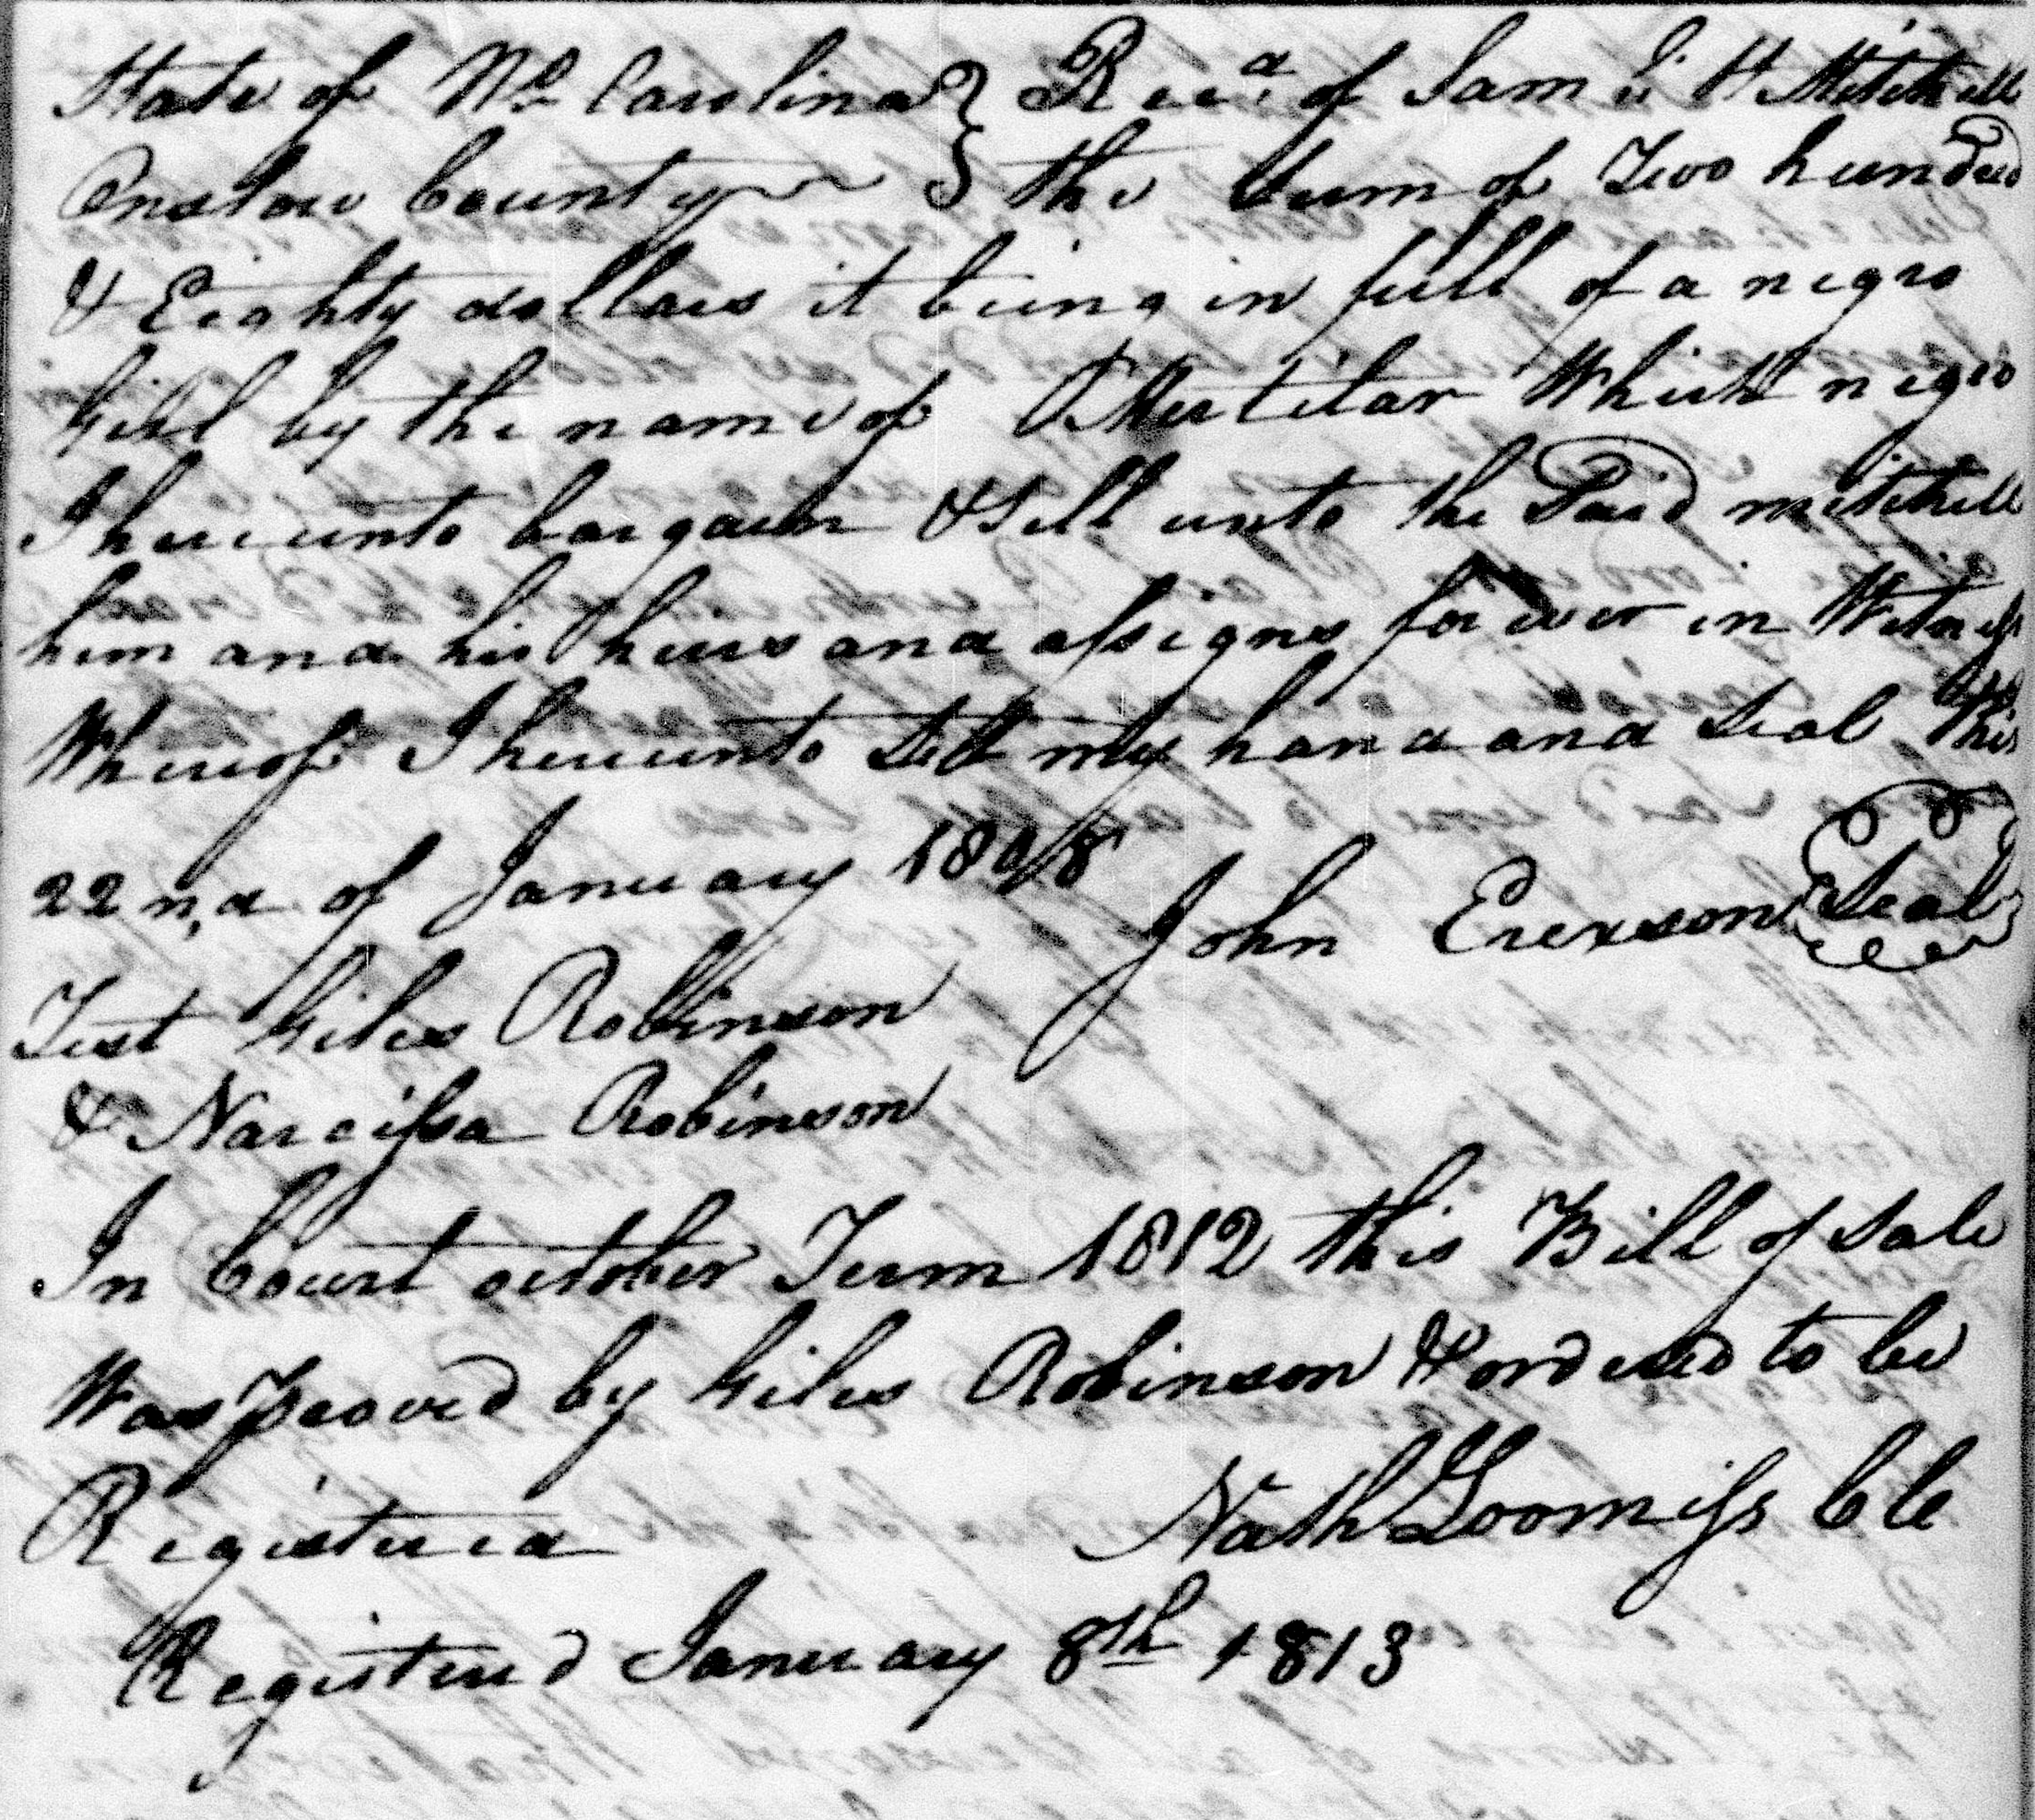 State of No Carolina } Recd. of Sam l H Mitchell
Onslow County } the Sum of Two hundred
& Eighty dollars it being in full of a negro
Girl by the name of which negro
I hereunto bargain & Sell unto the Said mitchell
him and his heirs and assigns for ever in Witness
Whereof I hereunto Sett my hand and Seal this
22nd of January
John Seal
Test Giles Robinson
& Narcissa Robinson
In Court october Term 1812 this Bill of Sale
Was proved by Giles Robinson & ordered to be
Registered Nath Loomiss Clk
Registered January 8th 1813